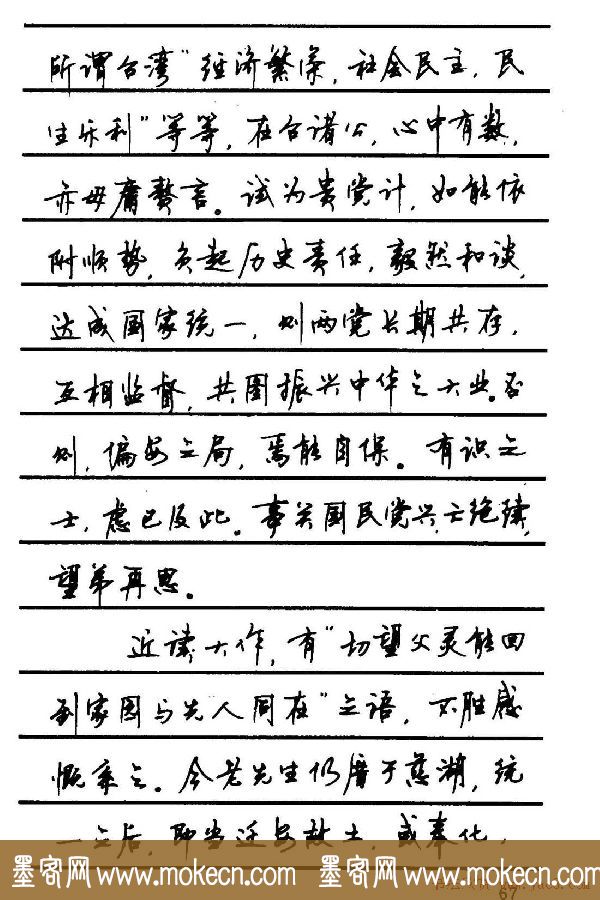 所谓台湾“经济繁荣，社会民主，民
生乐利”等等，在台诸公，心中有数，
亦毋庸赘言。试为贵党计，如能依
附顺势，负起历史责任，毅然和谈，
达成国家统一，则两党长期共存，
互相监督，共图振兴中华之大业。否
则，偏安之局，焉能自保。有识之
士，虑已及此。事关国民党兴亡绝续，
望弟再思。
近读大作，有“切望父灵能回
到家园与先人同在”之语，不胜感
慨系之。今老先生仍厝于慈湖，统
一之后，即当迁安故土，或奉化，
墨客网 www.mokecn.com 墨客网 www.mokecn.com
67